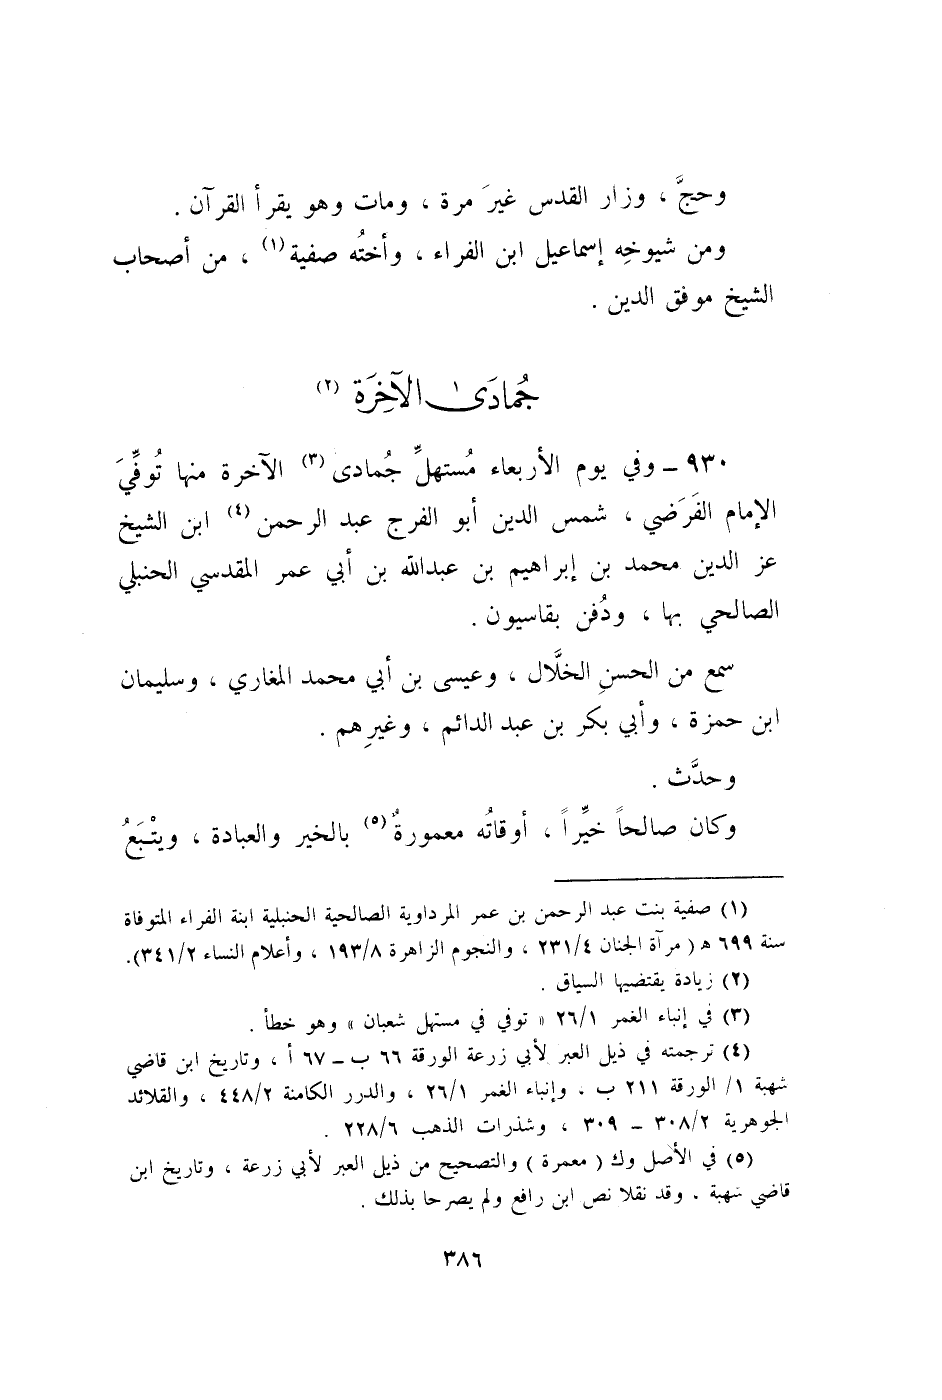 وحجَّ ، وزار القدس غيرَ مرة ، ومات وهو يقرأ القرآن .
ومن شيوخِه إسماعيل ابن الفراء ، وأختُه صفية(١) ، من أصحاب
الشيخ موفق الدين .
جُمادَىٰ الآخِرَة (٢)
٩٣٠ ـ وفي يوم الأربعاء مُستهلِّ جُمادى (٣) الآخرة منها تُوفِّيَ
الإمام الفَرَضي ، شمس الدين أبو الفرج عبد الرحمن (٤) ابن الشيخ
عز الدين محمد بن إبراهيم بن عبدالله بن أبي عمر المقدسي الحنبلي
الصالحي بها ، ودُفن بقاسيون .
سمع من الحسنِ الخلَّال ، وعيسى بن أبي محمد المغاري ، وسليمان
ابن حمزة ، وأبي بكر بن عبد الدائم ، وغيرِهم .
وحدَّث .
وكان صالحاً خيِّراً ، أوقاتُه معمورةٌ(٥) بالخير والعبادة ، ويتْبَعُ
(١) صفية بنت عبد الرحمن بن عمر المرداوية الصالحية الحنبلية ابنة الفراء المتوفاة
سنة ٦٩٩ هـ ( مرآة الجنان ٢٣١/٤ ، والنجوم الزاهرة ١٩٣/٨ ، وأعلام النساء ٣٤١/٢).
(٢) زيادة يقتضيها السياق .
(٣) في إنباء الغمر ٢٦/١ « توفي في مستهل شعبان » وهو خطأ .
(٤) ترجمته في ذيل العبر لأبي زرعة الورقة ٦٦ ب ـ ٦٧ أ ، وتاريخ ابن قاضي
شهبة ١/ الورقة ٢١١ ب ، وإنباء الغمر ٢٦/١ ، والدرر الكامنة ٤٤٨/٢ ، والقلائد
الجوهرية ٣٠٨/٢ ـ ٣٠٩ ، وشذرات الذهب ٢٢٨/٦ .
(٥) في الأصل وك ( معمرة ) والتصحيح من ذيل العبر لأبي زرعة ، وتاريخ ابن
قاضي شهبة . وقد نقلا نص ابن رافع ولم يصرحا بذلك .
٣٨٦